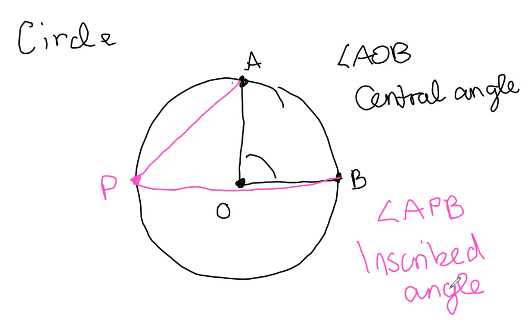 Circle
A
∠AOB
Central angle
P
B
O
∠APB
Inscribed
angle